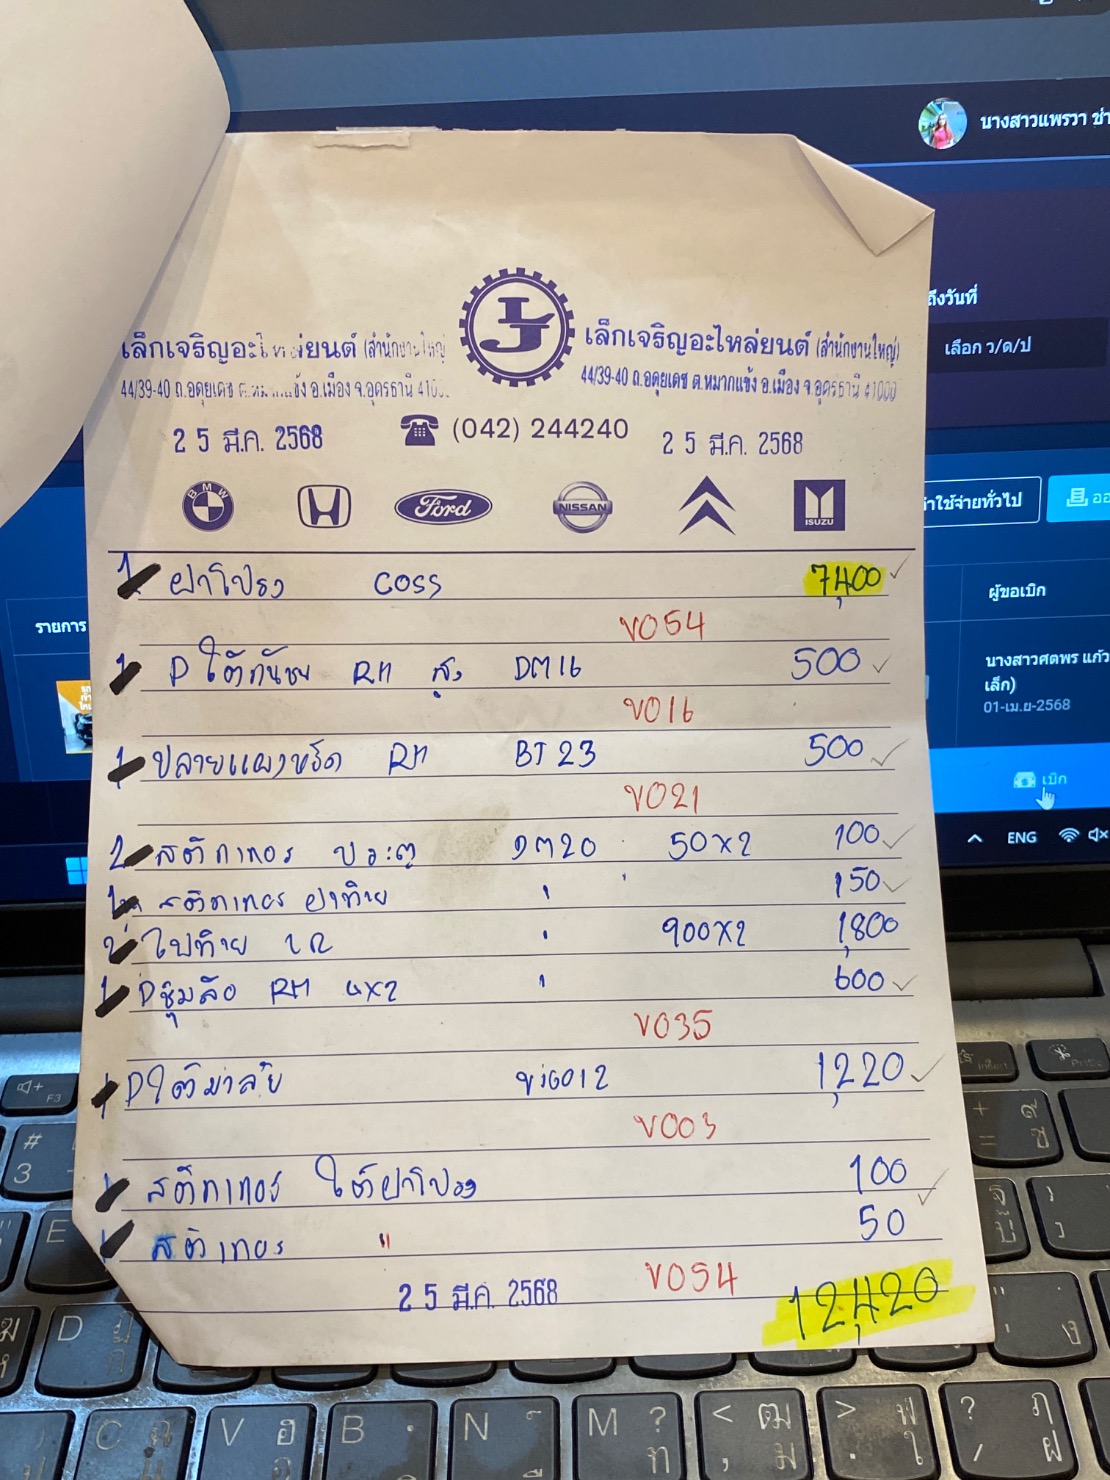 นางสาวแพรวา ช่า
ถึงวันที่
เลือก ว/ด/ป
เล็กเจริญอะไหล่ยนต์ (สำนักงานใหญ่)
44/39-40 ถ.อดุยเดช ต.หมากแข้ง อ.เมือง จ.อุดรธานี 41000
LJ
เล็กเจริญอะไหล่ยนต์ (สำนักงานใหญ่)
44/39-40 ถ.อดุยเดช ต.หมากแข้ง อ.เมือง จ.อุดรธานี 41000
25 มี.ค. 2568
(042) 244240
25 มี.ค. 2568
BMW
Ford
NISSAN
ISUZU
ค่าใช้จ่ายทั่วไป
ออ
รายการ
ผู้ขอเบิก
นางสาวศตพร แก้ว
เล็ก)
01-เม.ย-2568
เบิก
ENG
1 ฝาโปรง COSS 7,400
V054
1 P ใต้กันชน RH สูง DM16 500
V016
1 ปลายแผงหรัด RH BT23 500
V021
2 สติกเกอร ประตู DM20 50x2 100
1 สติกเกอร ฝาท้าย " 150
2 ไฟท้าย LR " 900x2 1,800
1 Pซุ้มล้อ RH 4x2 " 600
V035
1 Pใต้มาลัย วีโก้012 1,220
V003
1 สติกเกอร ใต้ฝาโปรง 100
1 สติกเกอร " 50
25 มี.ค. 2568
V054
12,420
F3
# 3
E
D
C
V อ
B
N
M ? ท
< ฒ , ม
> ฬ . ใ
? ฦ / ฝ